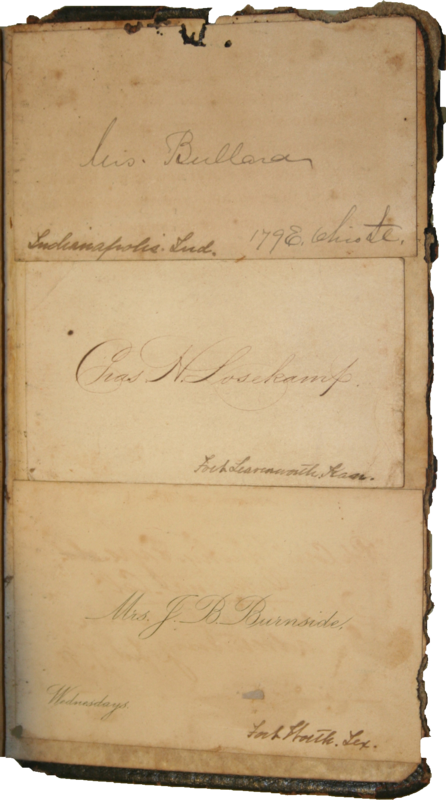 Mrs. Bullard
Indianapolis. Ind. 179 E. Ohio St.
Chas H. Losekamp.
Fort Leavenworth, Kan.
Mrs. J. B. Burnside.
Wednesdays
Fort Worth. Tex.